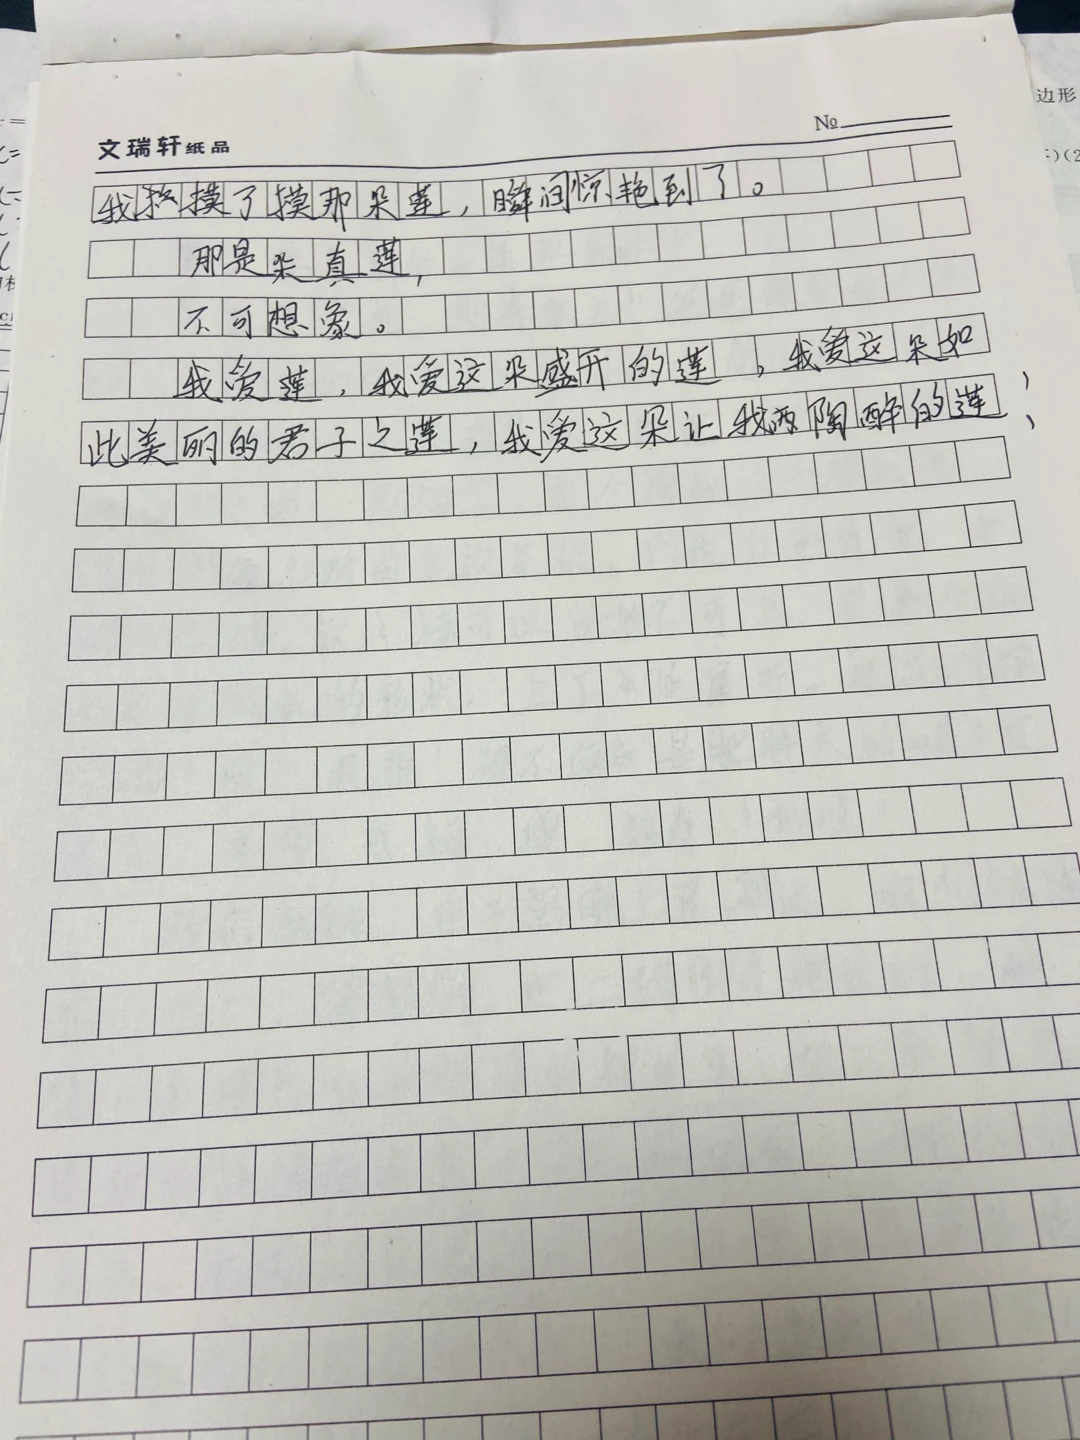 文瑞轩纸品
№
我抬摸了摸那朵莲，瞬间惊艳到了。
那是朵真莲，
不可想象。
我爱莲，我爱这朵盛开的莲，我爱这朵如
此美丽的君子之莲，我爱这朵让我陶醉的莲，
边形